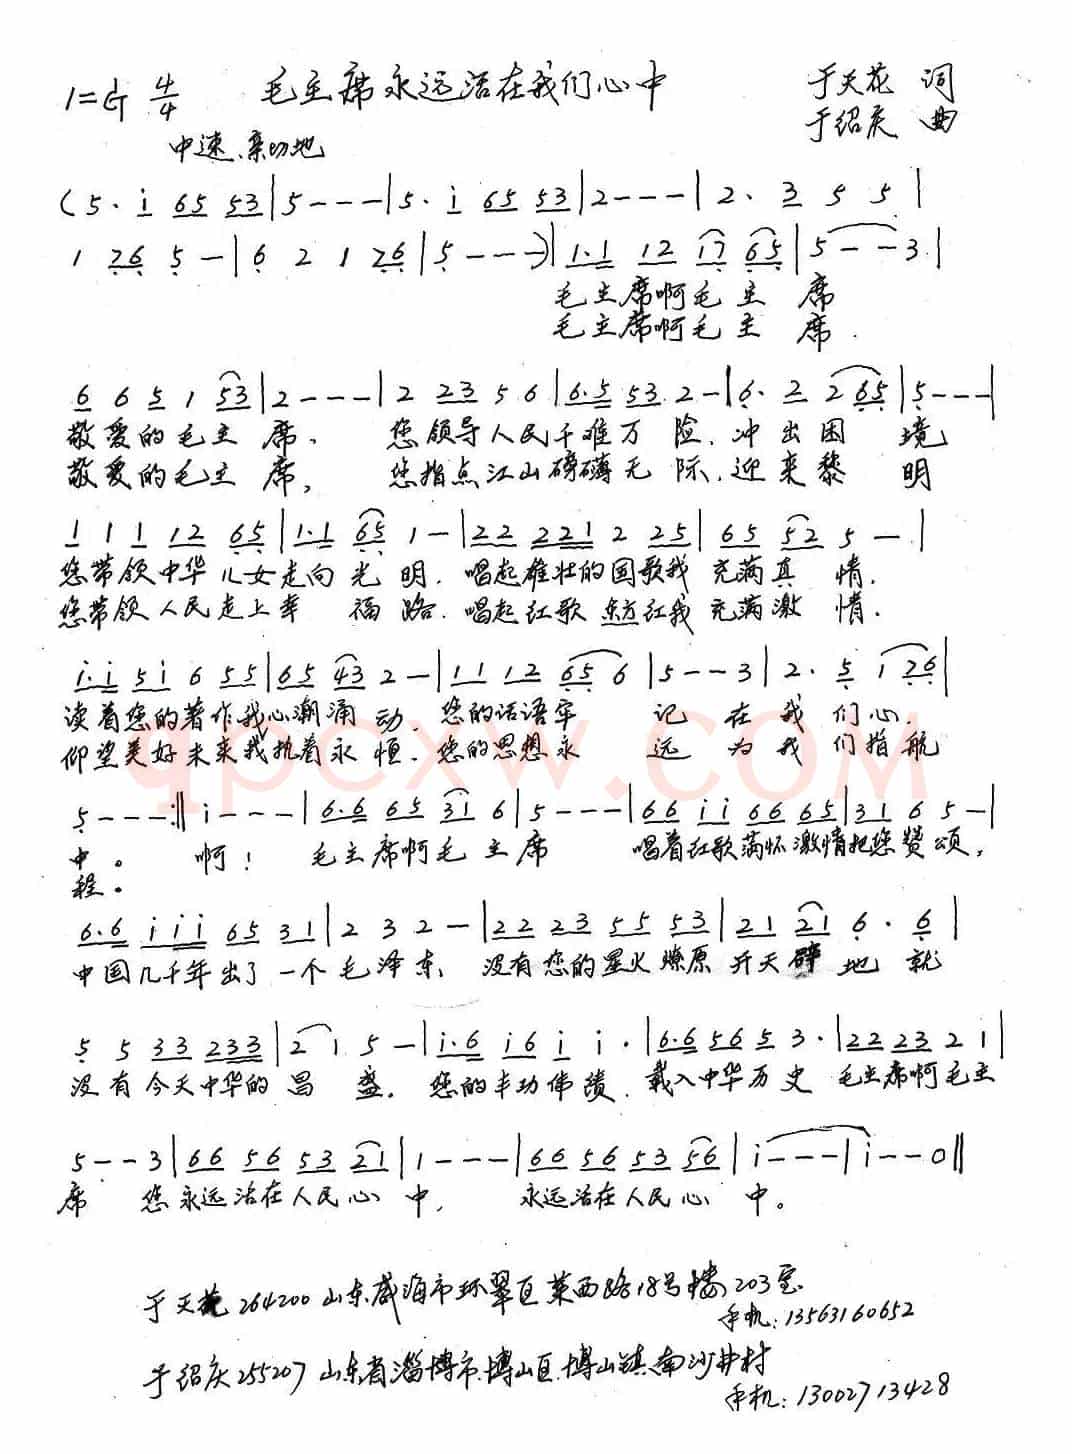 1=G 4/4 毛主席永远活在我们心中 于天花 词
于绍庆 曲
中速、亲切地
(5· i 65 53|5---|5· i 65 53|2---|2· 3 5 5|
1 26 5 -|6 2 1 26|5---)|1·1 12 17 65|5--3|
毛主席啊毛主席
毛主席啊毛主席.
6 6 5 1 53|2---|2 23 5 6|6·5 53 2-|6· 2 2 65|5---|
敬爱的毛主席、 您领导人民千难万险,冲出困境
敬爱的毛主席, 您指点江山磅礴无际,迎来黎明
1 1 1 12 65|1·1 65 1-|22 221 2 25|65 52 5 -|
您带领中华儿女走向光明.唱起雄壮的国歌我充满真情.
您带领人民走上幸福路.唱起红歌东方红我充满激情.
i·i 5i 6 55|65 43 2-|11 12 65 6|5--3|2· 5 1 26|
读着您的著作我心潮涌动,您的话语牢记在我们心.
仰望美好未来我执着永恒.您的思想永远为我们指航
5---:||i---|6·6 65 31 6|5---|66 ii 66 65|31 6 5-|
中。 啊! 毛主席啊毛主席 唱着红歌满怀激情把您赞颂,
程。
6·6 iii 65 31|2 3 2-|22 23 55 53|21 21 6· 6|
中国几千年出了一个毛泽东、没有您的星火燎原开天辟地就
5 5 33 233|2 1 5-|i·6 i6 i i·|6·6 565 3·|22 23 2 1|
没有今天中华的昌盛.您的丰功伟绩.载入中华历史 毛主席啊毛主
5--3|66 56 53 21|1---|66 56 53 56|i---|i--0||
席 您永远活在人民心中, 永远活在人民心中。
于天花 264200 山东威海市环翠区莱西路18号楼203室
手机:13563160652
于绍庆 255207 山东省淄博市博山区博山镇南沙井村
手机:13002713428
qpcxw.com